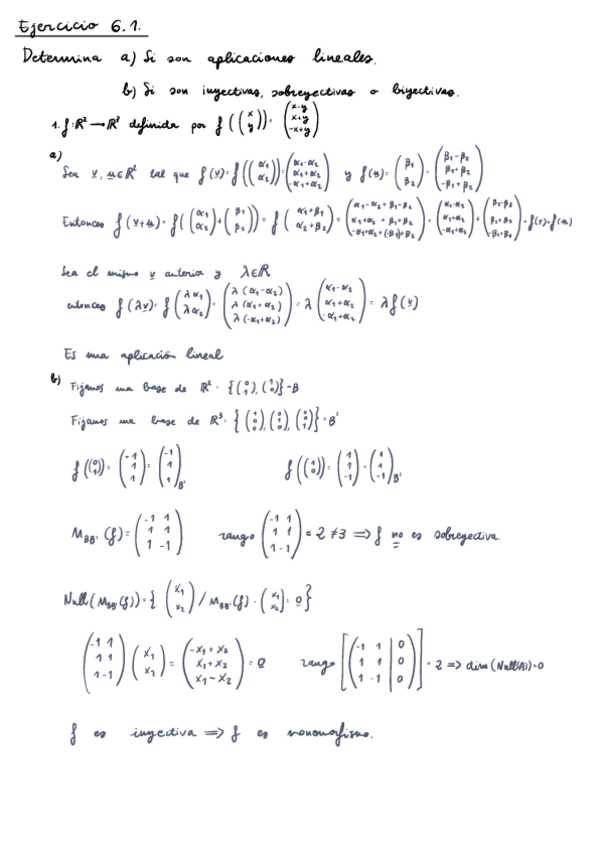 Ejercicio 6.1.
Determina a) Si son aplicaciones lineales.
b) Si son inyectivas, sobreyectivas o biyectivas.
1. f: R² → R³ definida por f((x y)) = (x-y x+y -x+y)
a)
Sea v, u ∈ R² tal que f(v) = f((α₁ α₂)) = (α₁-α₂ α₁+α₂ -α₁+α₂) y f(u) = (β₁ β₂) = (β₁-β₂ β₁+β₂ -β₁+β₂)
Entonces f(v+u) = f((α₁ α₂)+(β₁ β₂)) = f(α₁+β₁ α₂+β₂) = (α₁-α₂+β₁-β₂ α₁+α₂+β₁+β₂ -α₁+α₂+(-β₁)+β₂) = (α₁-α₂ α₁+α₂ -α₁+α₂) + (β₁-β₂ β₁+β₂ -β₁+β₂) = f(v)+f(u)
Sea el mismo v anterior y λ∈R
entonces f(λv) = f(λα₁ λα₂) = (λ(α₁-α₂) λ(α₁+α₂) λ(-α₁+α₂)) = λ(α₁-α₂ α₁+α₂ -α₁+α₂) = λf(v)
Es una aplicación lineal
b) Fijamos una base de R² = {(0 1), (1 0)} = B
Fijamos una base de R³ = {(1 0 0), (0 1 0), (0 0 1)} = B'
f((0 1)) = (-1 1 1) = (-1 1 1)B' f((1 0)) = (1 1 -1) = (1 1 -1)B'
M_BB'(f) = (-1 1 1 1 1 -1) rango (-1 1 1 1 1 -1) = 2 ≠ 3 ⇒ f no es sobreyectiva
Null(M_BB'(f)) = {(x₁ x₂) / M_BB'(f) · (x₁ x₂) = 0}
(-1 1 1 1 1 -1) (x₁ x₂) = (-x₁+x₂ x₁+x₂ x₁-x₂) = 0 rango [(-1 1 | 0 1 1 | 0 1 -1 | 0)] = 2 ⇒ dim(Null(A)) = 0
f es inyectiva ⇒ f es monomorfismo.